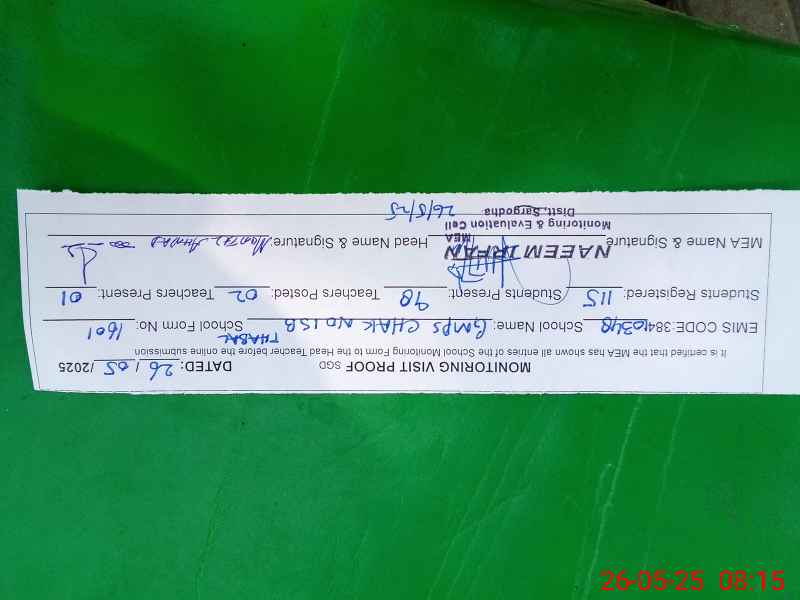 MONITORING VISIT PROOF SGD DATED: 26/05/2025
It is certified that the MEA has shown all entries of the School Monitoring Form to the Head Teacher before the online submission
EMIS CODE:38410348 School Name: GMPS CHAK NO 15B THABAL School Form No: 1601
Students Registered: 115 Students Present: 98 Teachers Posted: 02 Teachers Present: 01
MEA Name & Signature NAEEM IRFAN Head Name & Signature:
MEA
Monitoring & Evaluation Cell
Distt. Sargodha
26/5/25
26-05-25 08:15